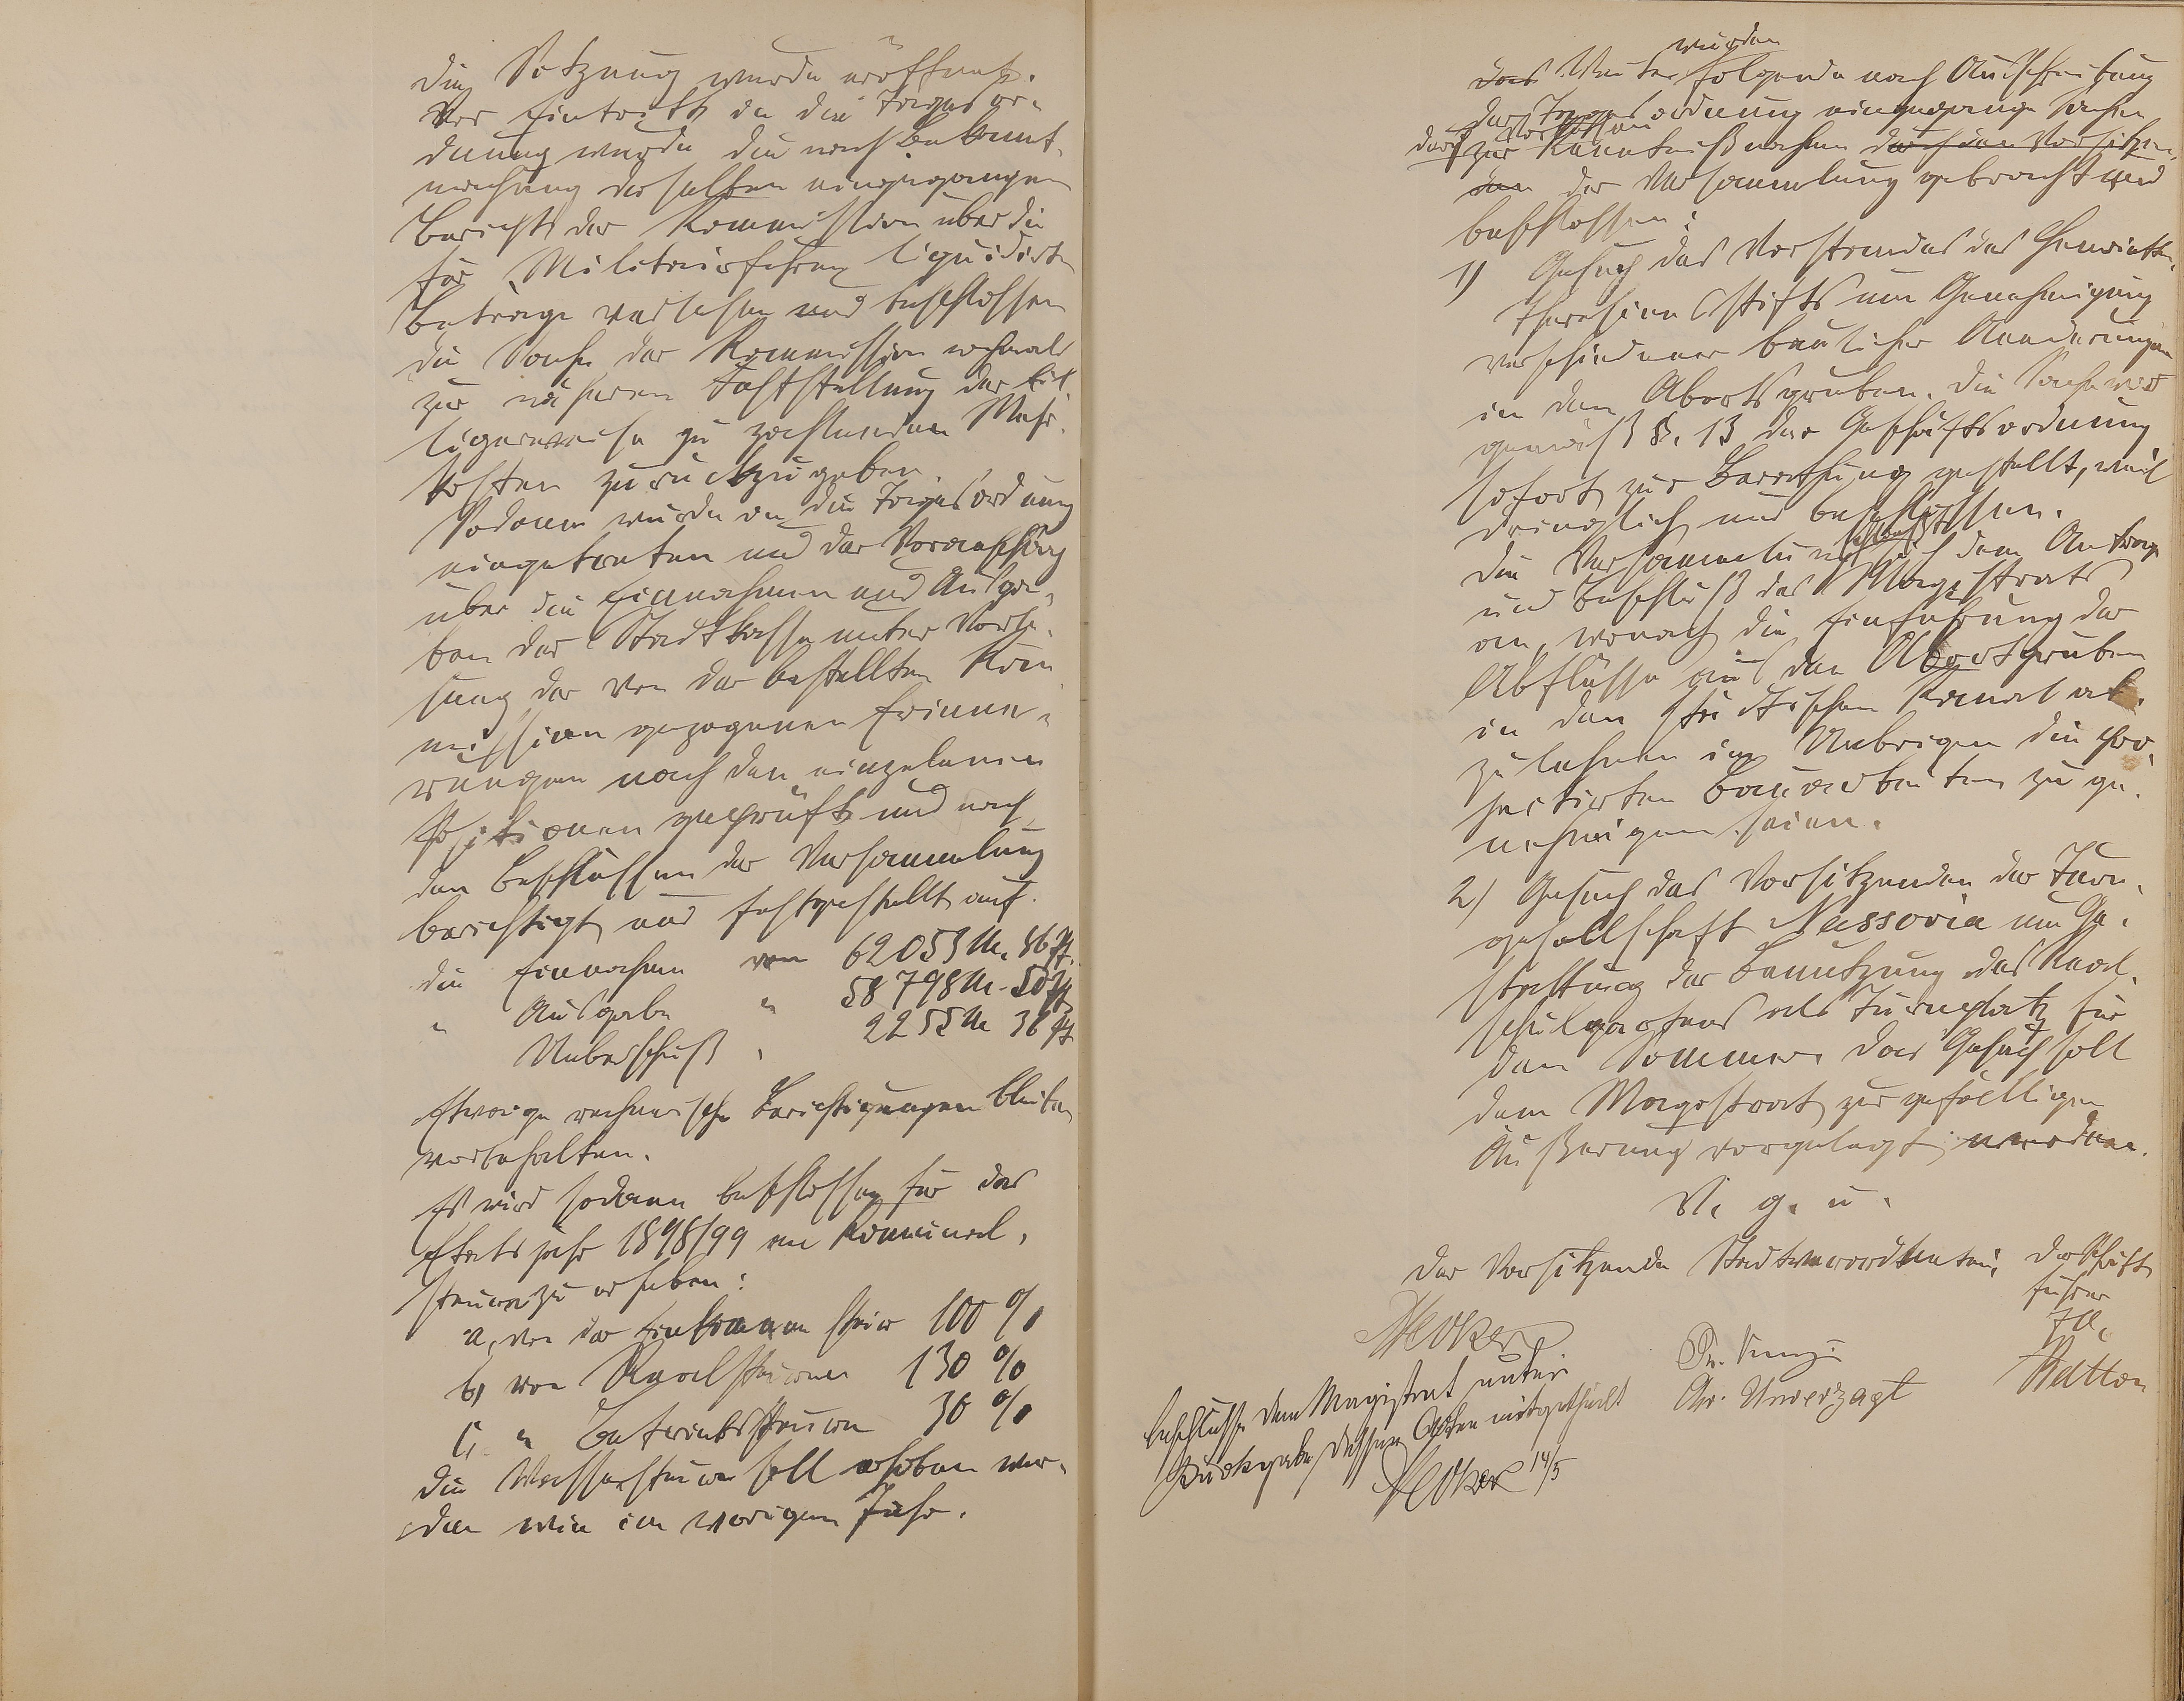 Die Sitzung wurde eröffnet.
Vor Eintritt in die Tagesor-
dnung wurde die nach Bekannt-
machung derselben eingegangen
Bericht der Kommission über die
für Militairfuhren liquidirten
Beträge verlesen und beschlossen
die Sache der Kommission nochmals
zur näheren Feststellung der bil
ligerweise zu zahlenden Mehr-
kosten zurückzugeben.
Sodann wurde in die Tagesordnung
eingetreten und der Voranschlag
über die Einnahmen und Ausga-
ben der Stadtkasse unter Verle-
sung der von der bestellten Kom
mission gezogenen Erinne-
rungen nach den einzelnen
Positionen geprüft und nach
den Beschlüssen der Versammlung
berichtigt und festgestellt auf.
die Einnahmen von 62053 M. 86 Pf.
" Ausgabe " 58798 M. 50 Pf
Ueberschuß " 2255 M 36 Pf
Etwaige rechnerische Berichtigungen bleiben
vorbehalten.
Es wird sodann beschlossen für das
Etatsjahr 1898/99 an Kommunal-
steuern zu erheben:
a, von der Einkommensteuer 100 %
b, von Realsteuern 130 %
c, " Betriebssteuern 30 %
Die Wassersteuer soll erhoben wer-
den wie im vorigen Jahr.
wurden
das Weiter folgende nach Ausschreibung
der Tagesordnung eingegangene Sachen
zur Kenntnißnahme durch den Vorsitzen-
den der Versammlung gebracht und
beschlossen:
1) Gesuch des Vorstandes des Henrietten-
Theresien Stifts um Genehmigung
verschiedener baulicher Aenderungen
in den Abortsgruben. Die Sache wird
gemäß §. 13 der Geschäftsordnung
sofort zur Berathung gestellt, weil
dringlich und beschlossen.
schließt
Die Versammlung sich dem Antrag
und Beschluß des Magistrats
an, wonach die Einführung der
Abflüsse aus den Abortgruben
in den städtischen Kanal ab-
zulehnen im Uebrigen die pro-
jectirten Bauarbeiten zu ge-
nehmigen seien.
2) Gesuch des Vorsitzenden der Turn-
gesellschaft Nassovia um Ge-
stattung der Benutzung des Real-
schulgartens als Turnplatz für
den Sommer. Das Gesuch soll
dem Magistrat zur gefälligen
Äußerung vorgelegt werden.
V. g. u.
Der Vorsitzende Stadtverordneten. Der Schrift
führer
Chr. Unverzagt
Beschlüsse dem Magistrat unter
Rückgabe dessen Akten mitgetheilt
14/5